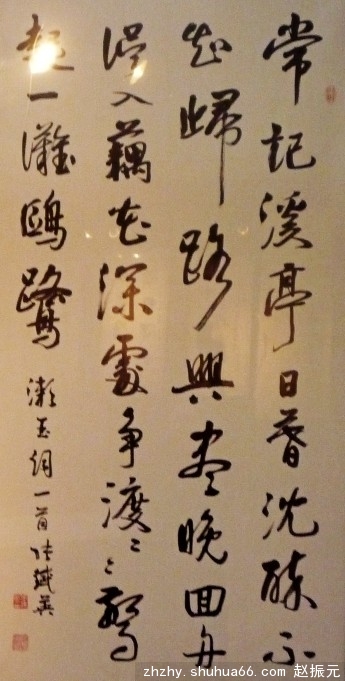 常記溪亭日暮沈醉不
知歸路興盡晚回舟
誤入藕花深處爭渡〻〻驚
起一灘鷗鷺
漱玉詞一首 张鐵英
zhzhy.shuhua66.com 赵振元